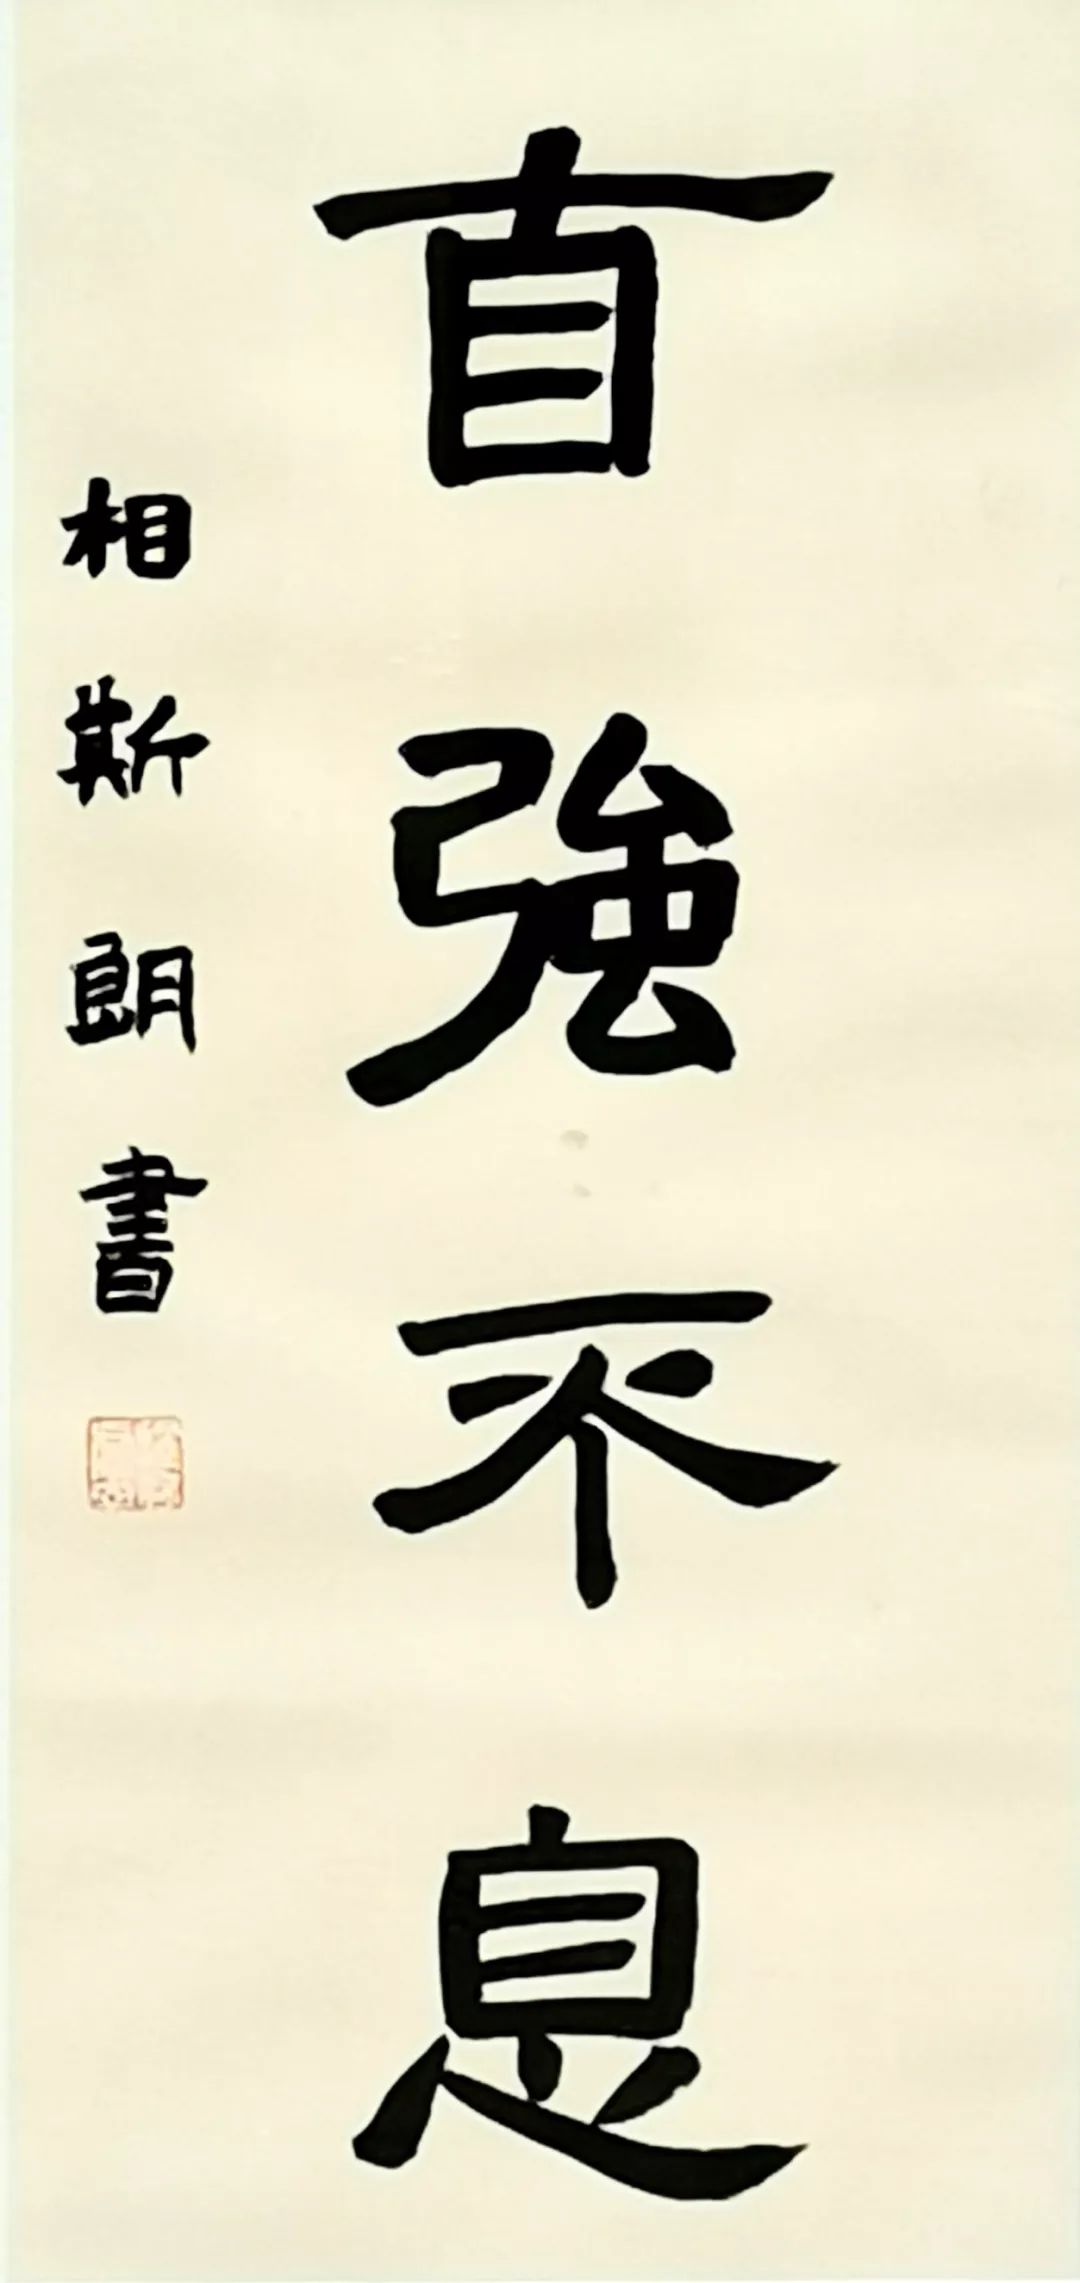 自強不息
相斯朗書